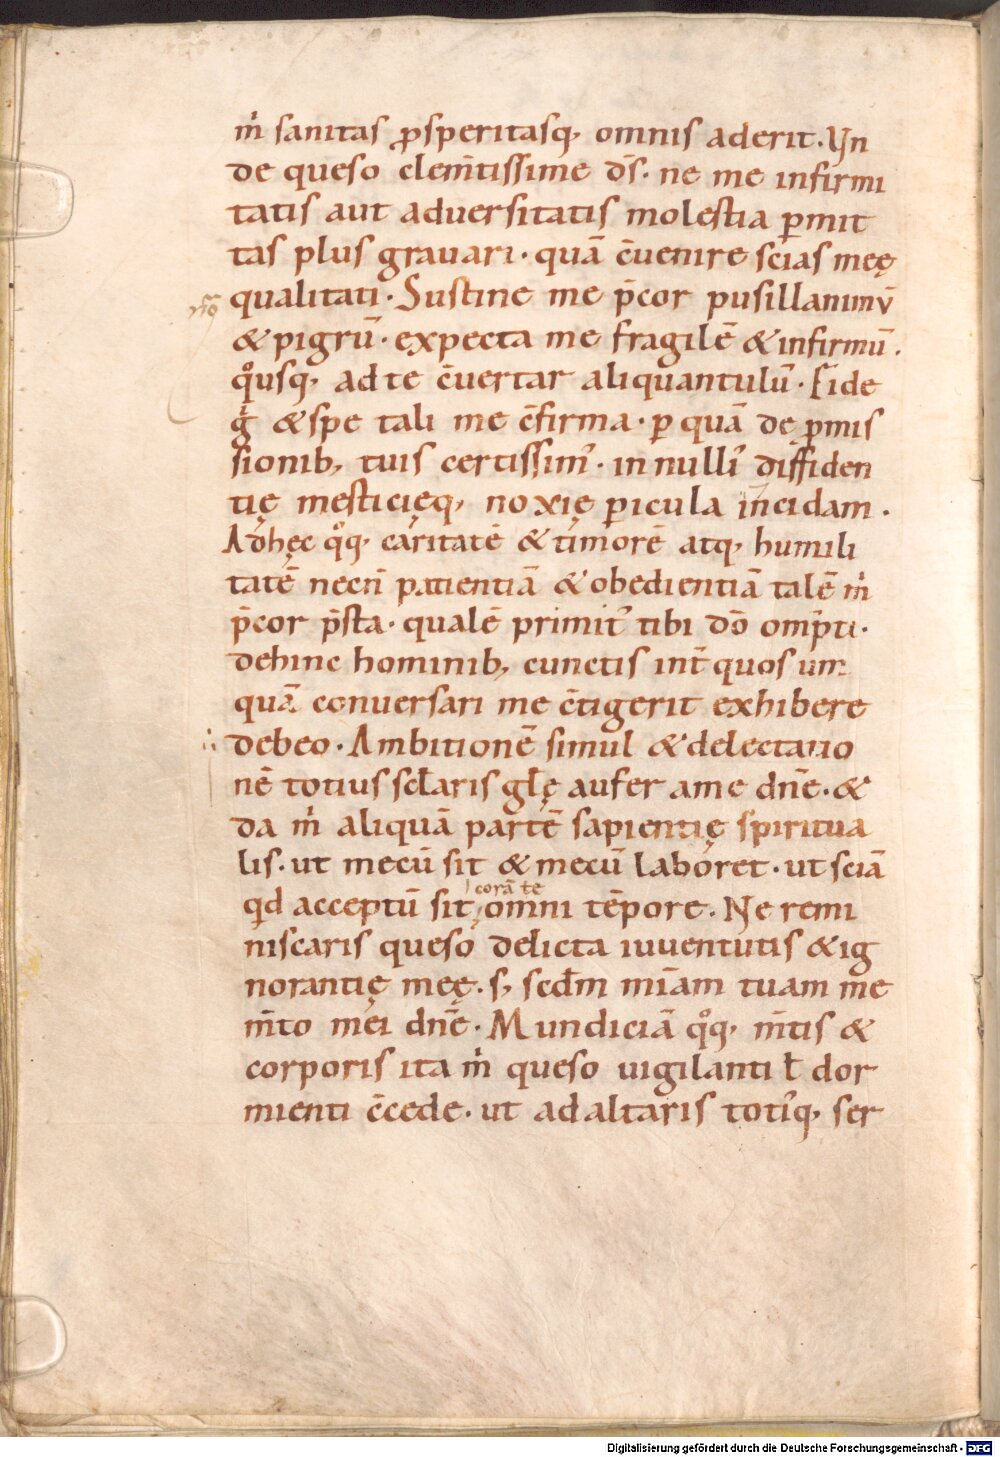 m̍ sanitas ꝓsperitasq, omnis aderit. Un
de queso clem̄tissime d̄s. ne me infirmi
tatis aut aduersitatis molestia ꝑmit
tas plus grauari. quā c̄uenire scias meę
qualitati. Sustine me p̄cor pusillanimū
& pigrū. expecta me fragilē & infirmū.
qͦusq, ad te c̄uertar aliquantulū. Fide
g̍ & spe tali me c̄firma. ꝑ quā de ꝓmis
sionib, tuis certissim᾽. in nulli᾽ diffiden
tię mesticięq, noxię ꝑicula incidam.
Adhęc qͦq, caritatē & timorē atq, humili
tatē necn̄ patientiā & obedientiā talē m̍
p̄cor p̄sta. qualē primit᾽ tibi dō omp̄ti.
dehinc hominib, cunctis int̄ quos um
quā conuersari me c̄tigerit exhibere
debeo. Ambitionē simul & delectatio
nē totius scl̄aris gl̄ę aufer a me dn̄e. &
da m̍ aliquā partē sapientię spiritua
lis. ut mecū sit & mecū laboret. ut sciā
corā te
qd acceptū sit omni tēpore. Ne remi
niscaris queso delicta iuuentutis & ig
norantię meę. s, scd̄m mīam tuam me
m̄to mei dn̄e. Mundiciā qͦq, m̄tis &
corporis ita m̍ queso uigilanti ł dor
mienti c̄cede. ut ad altaris toti᾽q, ser
Digitalisierung gefördert durch die Deutsche Forschungsgemeinschaft - DFG